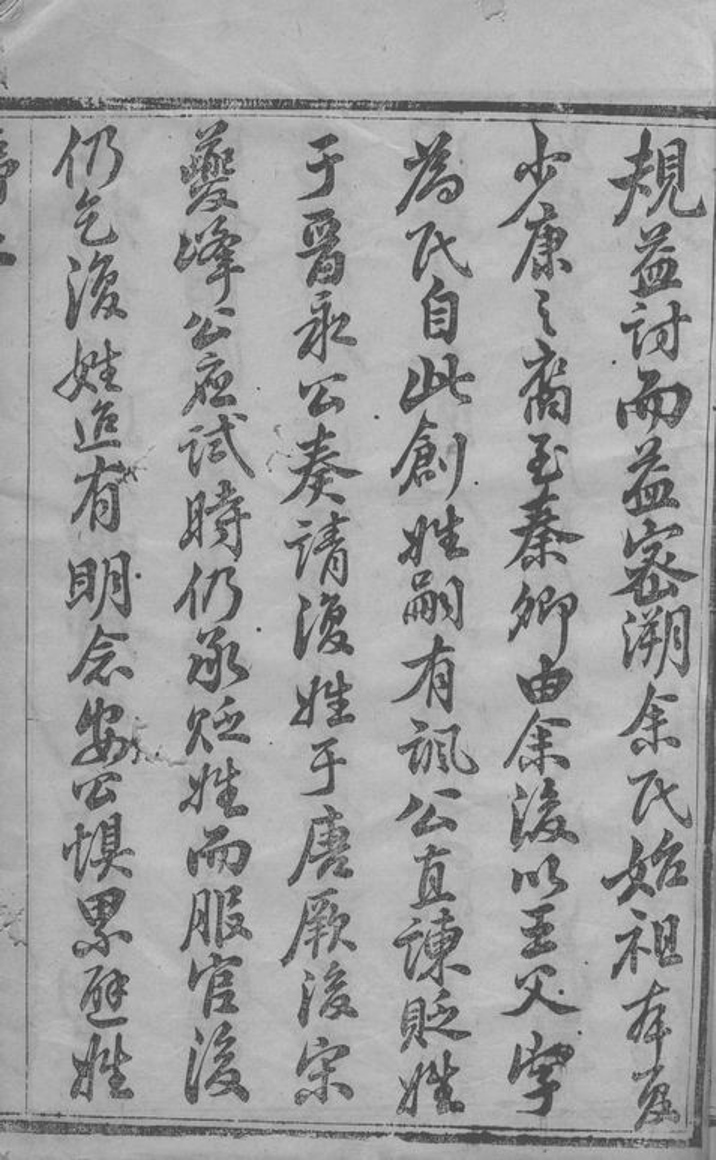 規益討而益密溯余氏始祖本夏
少康之裔至秦卿由余後以王父字
為氏自此創姓嗣有諷公直諫貶姓
于晉永公奏請復姓于唐厥後宋
夔峰公應試時仍承貶姓而服官後
仍乞復姓迨有明念安公懼累避姓